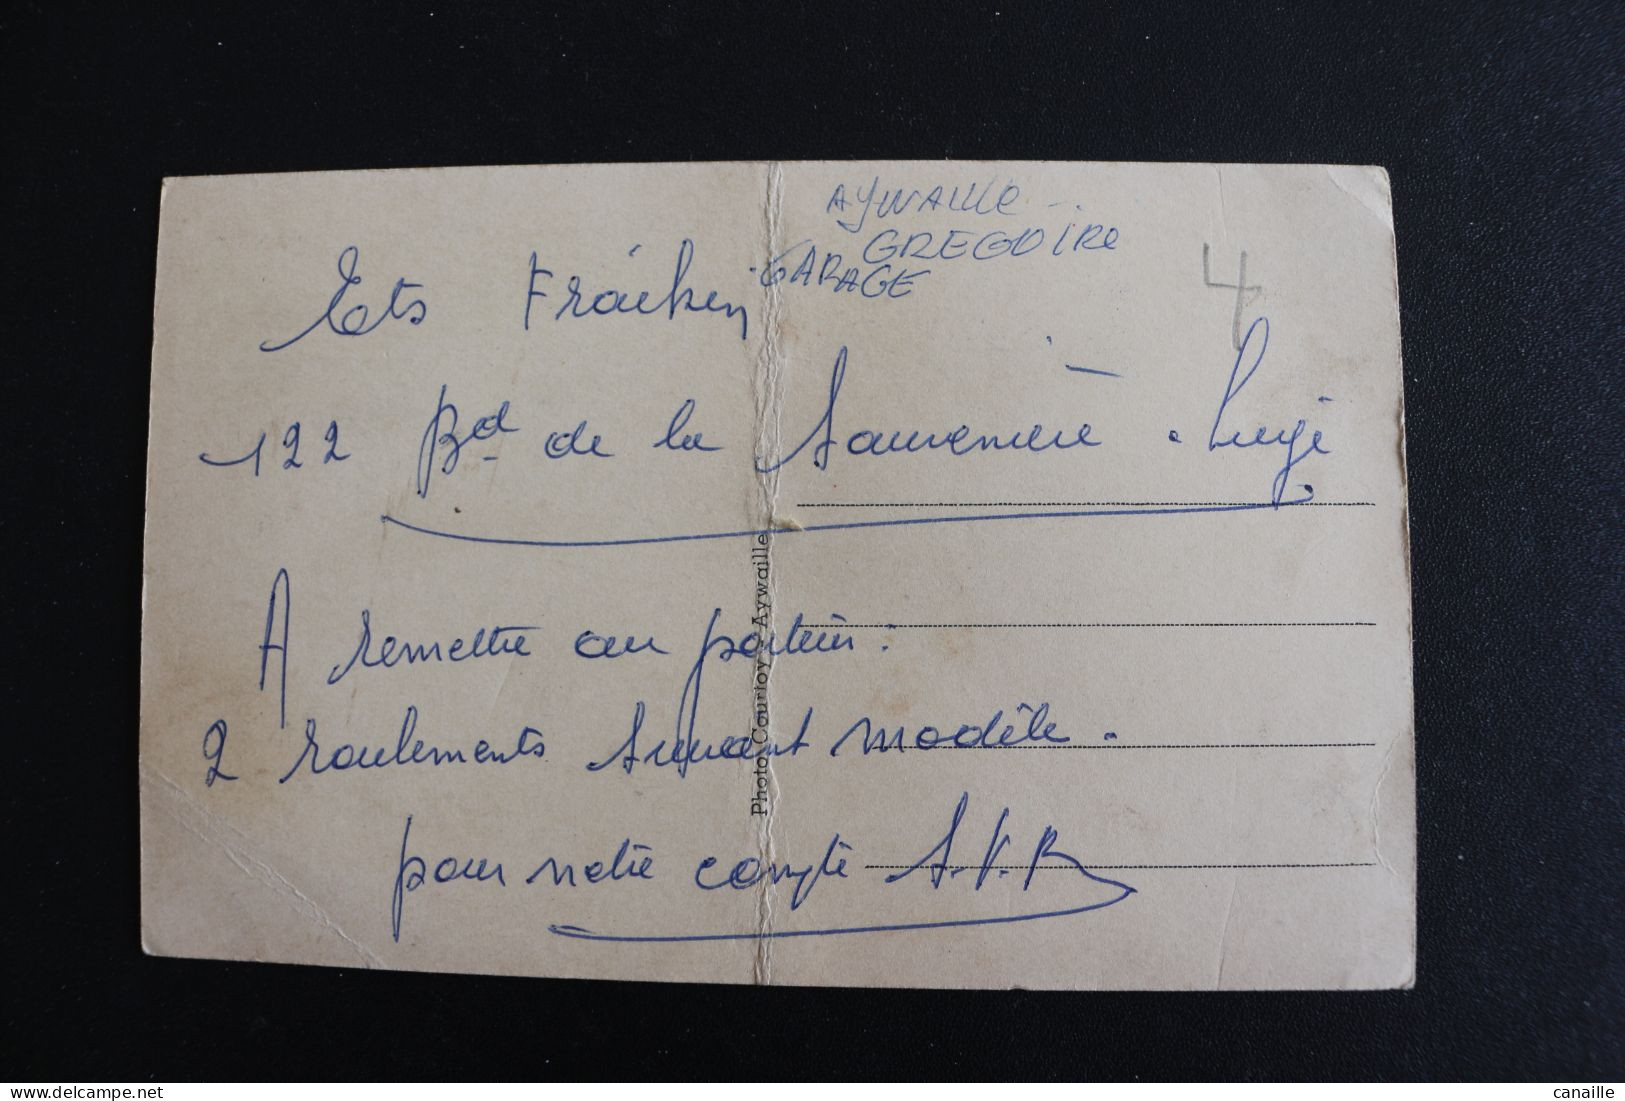 AYWAILLE
GREGOIRE
GARAGE
4
Ets Fraiken
122 Bd de la Sauvenière. Liège
A remettre au porteur:
2 roulements suivant modèle.
pour notre compte S.V.P.
Photo Courtoy - Aywaille
canaille